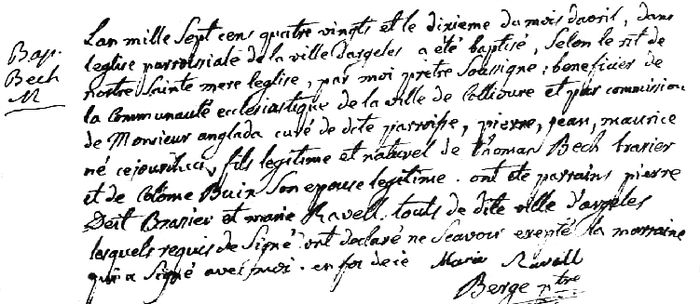 Bap.
Bech
M
Lan mille Sept cens quatre vingts et le dixieme du mois davril, dans
leglise parroissiale de la ville dargeles a été baptisé, Selon le rit de
nostre Sainte mere leglise, par moi prètre Soussigné; beneficier de
la Communauté ecclesiastique de la ville de Collioure et par commission
de Monsieur anglada curé de dite parroisse, pierre, jean, maurice
né cejourdhui, fils legitime et naturel de thomas Bech brasier
et de Colome Buin Son epouse legitime. ont été parrains pierre
Deit Brasier et marie Ravell. touts de dite ville d'argeles
lesquels requis de Signé ont declaré ne Scavoir exepté la marraine
qui a Signé avec moi. en foi de ce Marie Ravell
Berge ptre